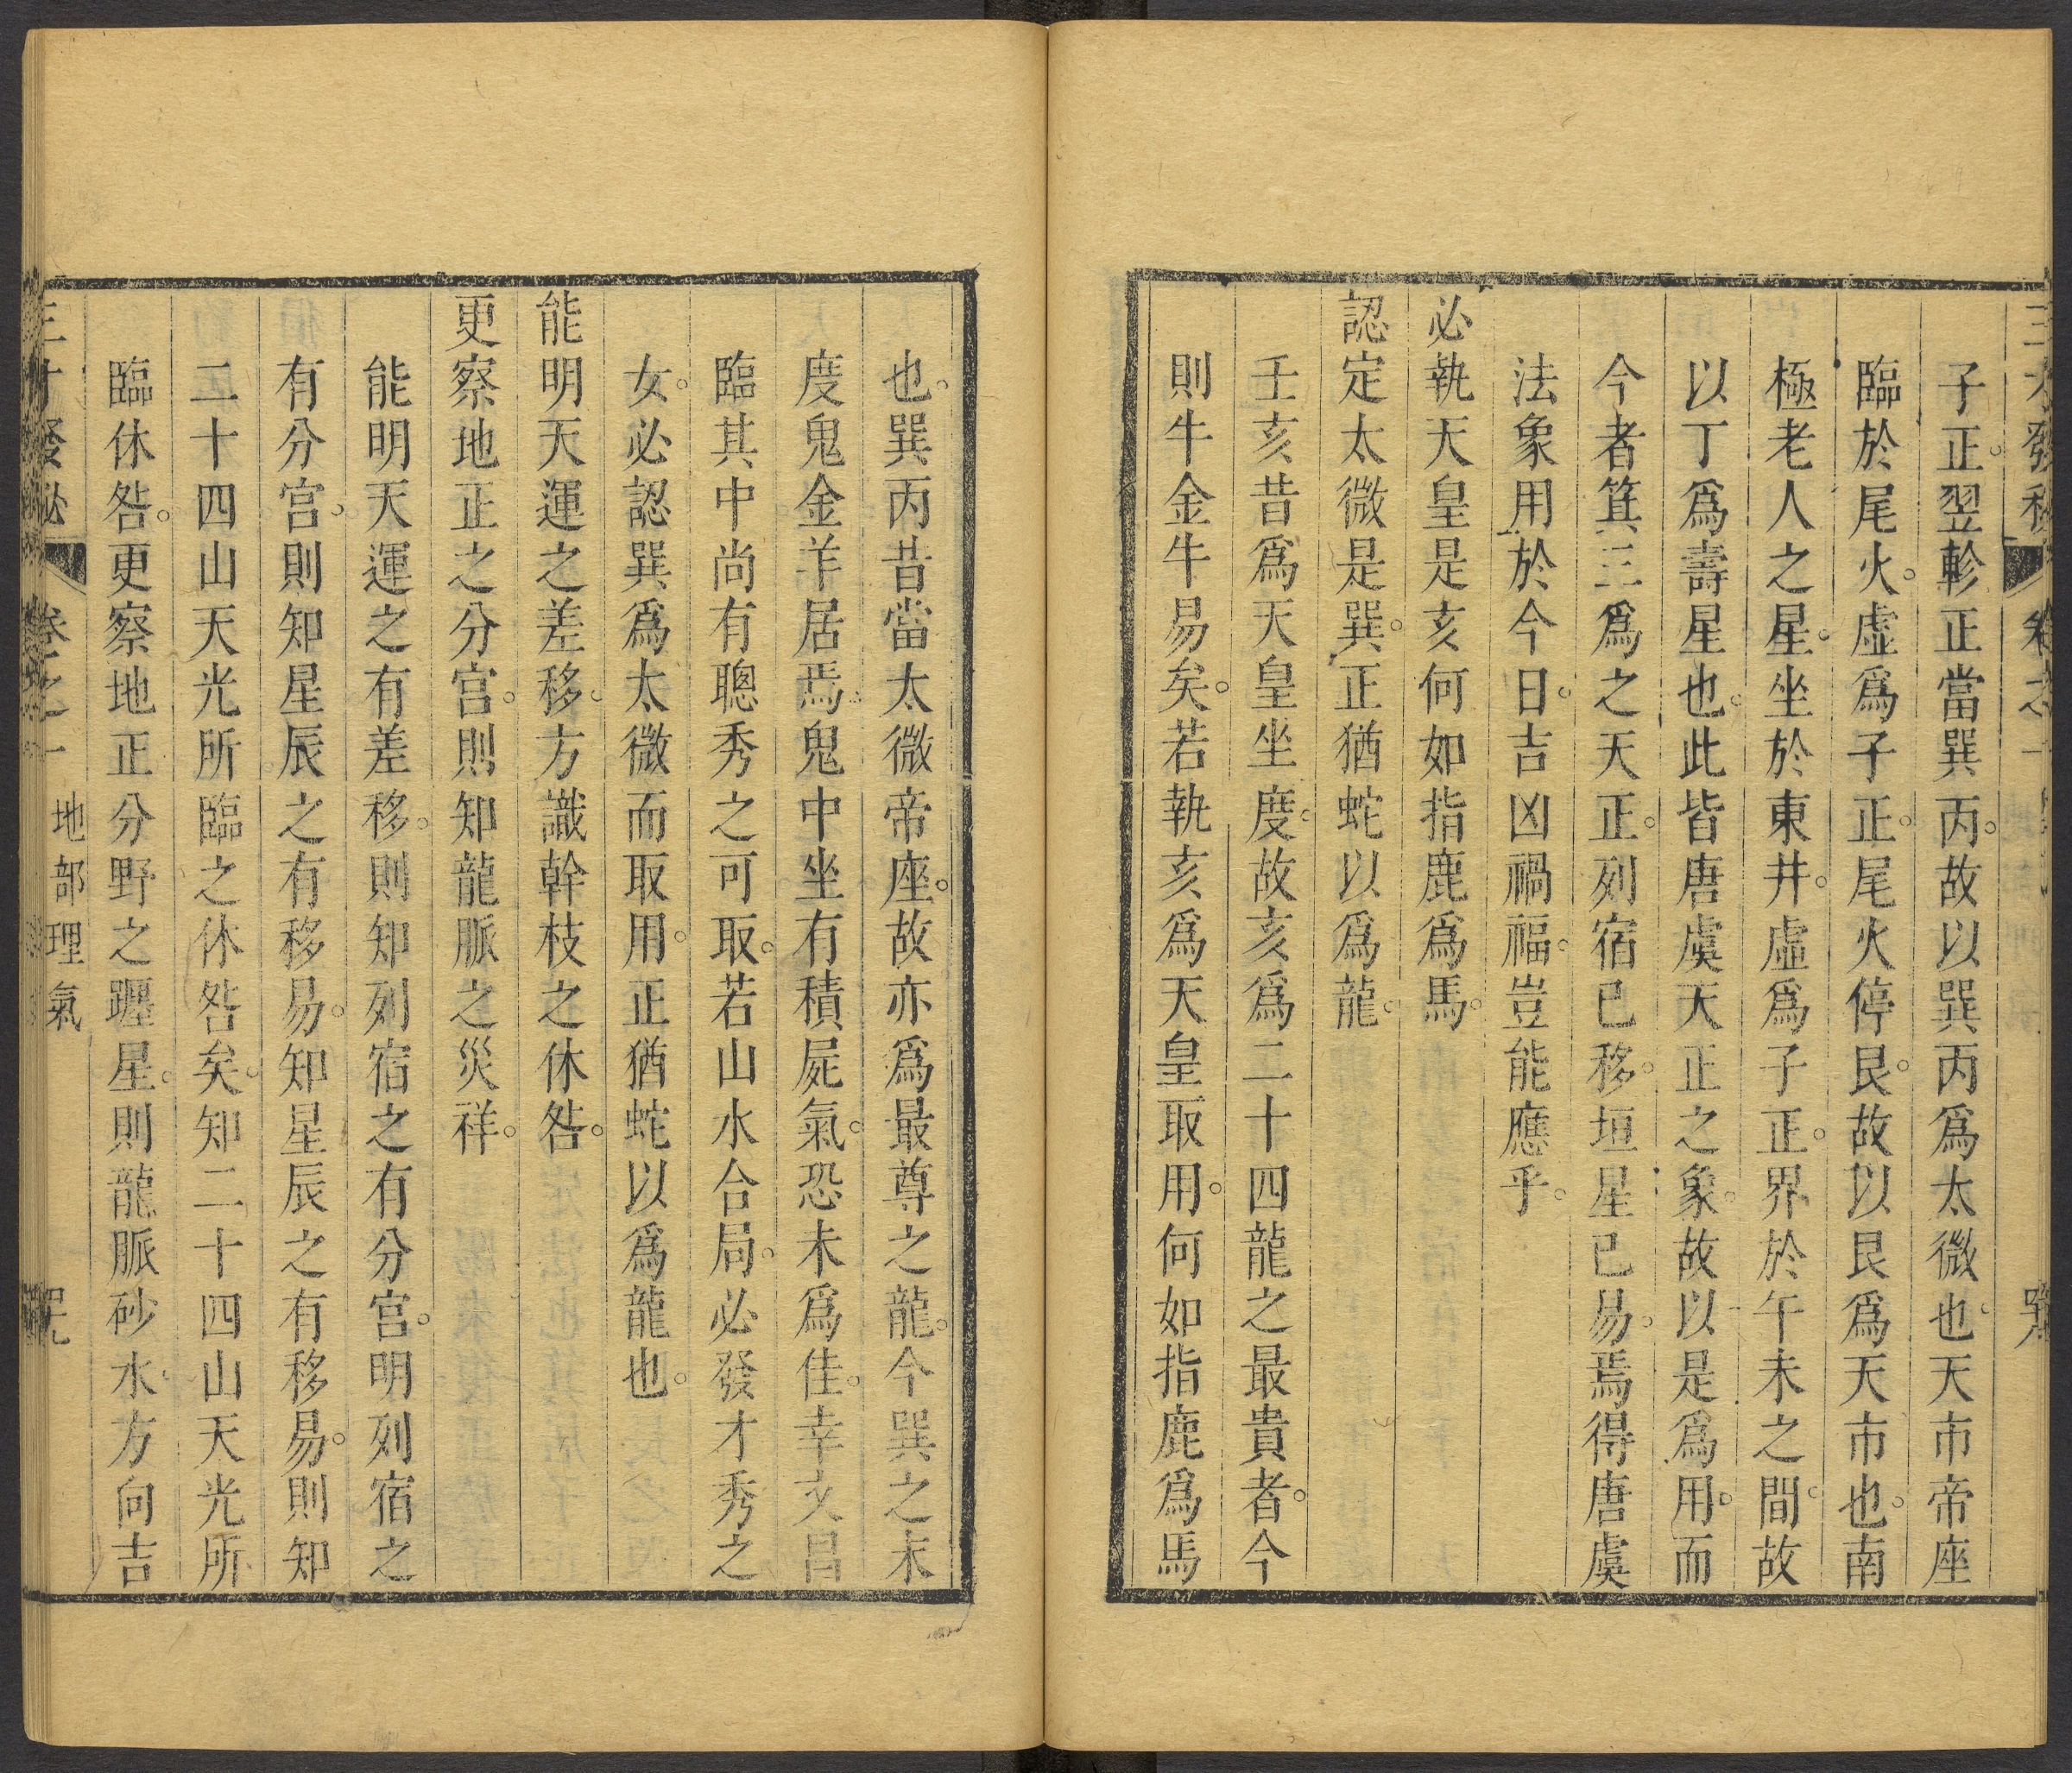 子正翌軫正當巽丙故以巽丙爲太微也天市帝座
臨於尾火虛爲子正尾火停艮故以艮爲天市也南
極老人之星坐於東井虛爲子正界於午未之間故
以丁爲壽星也此皆唐虞天正之象故以是爲用而
今者箕三爲之天正列宿已移垣星已易焉得唐虞
法象用於今日吉凶禍福豈能應乎
必執天皇是亥何如指鹿爲馬
認定太微是巽正猶蛇以爲龍
壬亥昔爲天皇坐度故亥爲二十四龍之最貴者今
則牛金牛易矣若執亥爲天皇取用何如指鹿爲馬
也巽丙昔當太微帝座故亦爲最尊之龍今巽之未
度鬼金羊居焉鬼中坐有積屍氣恐未爲佳幸文昌
臨其中尚有聰秀之可取若山水合局必發才秀之
女必認巽爲太微而取用正猶蛇以爲龍也
能明天運之差移方識幹枝之休咎
更察地正之分宫則知龍脈之災祥
能明天運之有差移則知列宿之有分宫明列宿之
有分宫則知星辰之有移易知星辰之有移易則知
二十四山天光所臨之休咎矣知二十四山天光所
臨休咎更察地正分野之躔星則龍脈砂水方向吉
三才發秘 卷之一 地部理氣